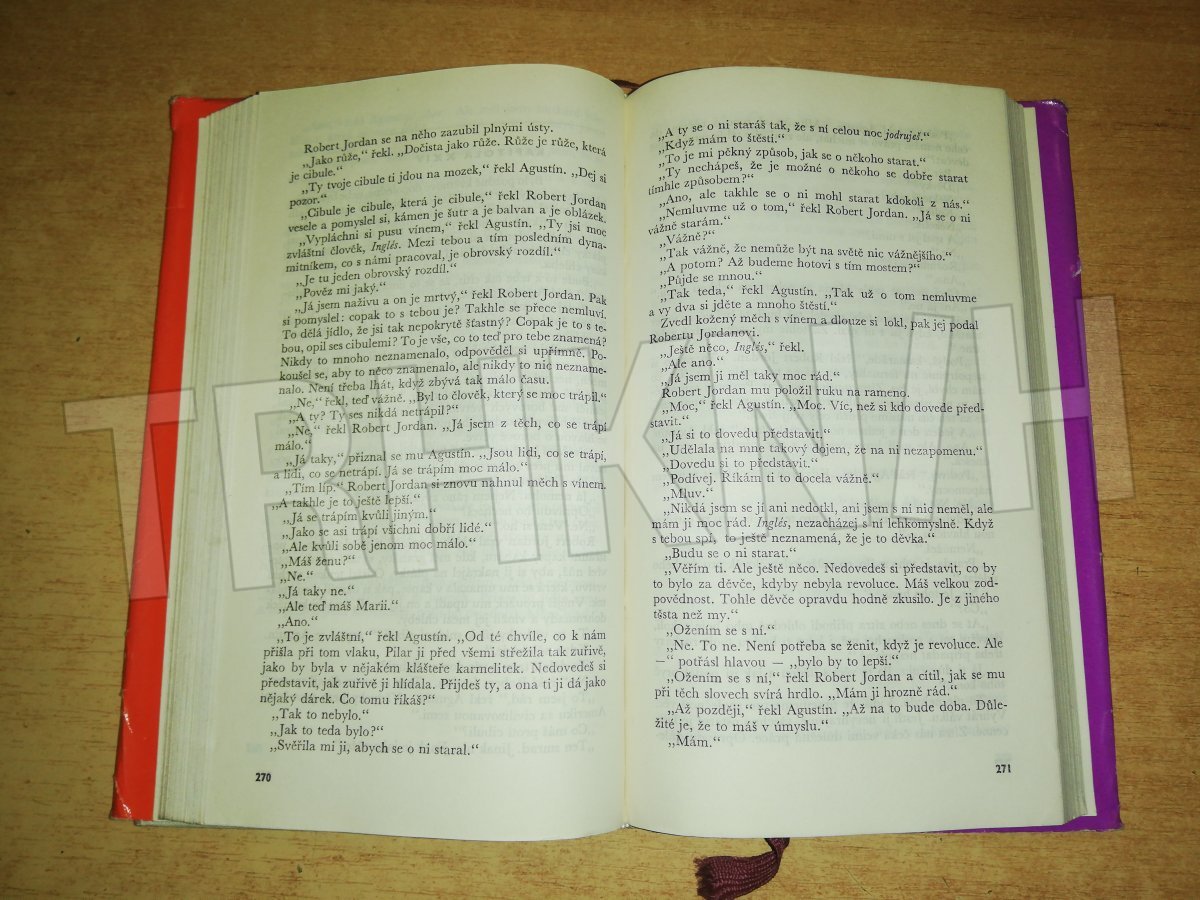 Robert Jordan se na něho zazubil plnými ústy.
„Jako růže,“ řekl. „Dočista jako růže. Růže je růže, která
je cibule.“
„Ty tvoje cibule ti jdou na mozek,“ řekl Agustín. „Dej si
pozor.“
„Cibule je cibule, která je cibule,“ řekl Robert Jordan
vesele a pomyslel si, kámen je šutr a je balvan a je oblázek.
„Vypláchni si pusu vínem,“ řekl Agustín. „Ty jsi moc
zvláštní člověk, Inglés. Mezi tebou a tím posledním dyna-
mitníkem, co s námi pracoval, je obrovský rozdíl.“
„Je tu jeden obrovský rozdíl.“
„Pověz mi jaký.“
„Já jsem naživu a on je mrtvý,“ řekl Robert Jordan. Pak
si pomyslel: copak to s tebou je? Takhle se přece nemluví.
To dělá jídlo, že jsi tak nepokrytě šťastný? Copak je to s te-
bou, opil ses cibulemi? To je vše, co to teď pro tebe znamená?
Nikdy to mnoho neznamenalo, odpověděl si upřímně. Po-
koušel se, aby to něco znamenalo, ale nikdy to nic nezname-
nalo. Není třeba lhát, když zbývá tak málo času.
„Ne,“ řekl, teď vážně. „Byl to člověk, který se moc trápil.“
„A ty? Ty ses nikdá netrápil?“
„Ne,“ řekl Robert Jordan. „Já jsem z těch, co se trápí
málo.“
„Já taky,“ přiznal se mu Agustín. „Jsou lidi, co se trápí,
a lidi, co se netrápí. Já se trápím moc málo.“
„Tím líp.“ Robert Jordan si znovu nahnul měch s vínem.
„A takhle je to ještě lepší.“
„Já se trápím kvůli jiným.“
„Jako se asi trápí všichni dobří lidé.“
„Ale kvůli sobě jenom moc málo.“
„Máš ženu?“
„Ne.“
„Já taky ne.“
„Ale teď máš Marii.“
„Ano.“
„To je zvláštní,“ řekl Agustín. „Od té chvíle, co k nám
přišla při tom vlaku, Pilar ji před všemi střežila tak zuřivě,
jako by byla v nějakém klášteře karmelitek. Nedovedeš si
představit, jak zuřivě ji hlídala. Přijdeš ty, a ona ti ji dá jako
nějaký dárek. Co tomu říkáš?“
„Tak to nebylo.“
„Jak to teda bylo?“
„Svěřila mi ji, abych se o ni staral.“
270
„A ty se o ni staráš tak, že s ní celou noc jodruješ.“
„Když mám to štěstí.“
„To je mi pěkný způsob, jak se o někoho starat.“
„Ty nechápeš, že je možné o někoho se dobře starat
tímhle způsobem?“
„Ano, ale takhle se o ni mohl starat kdokoli z nás.“
„Nemluvme už o tom,“ řekl Robert Jordan. „Já se o ni
vážně starám.“
„Vážně?“
„Tak vážně, že nemůže být na světě nic vážnějšího.“
„A potom? Až budeme hotovi s tím mostem?“
„Půjde se mnou.“
„Tak teda,“ řekl Agustín. „Tak už o tom nemluvme
a vy dva si jděte a mnoho štěstí.“
Zvedl kožený měch s vínem a dlouze si lokl, pak jej podal
Robertu Jordanovi.
„Ještě něco, Inglés,“ řekl.
„Ale ano.“
„Já jsem ji měl taky moc rád.“
Robert Jordan mu položil ruku na rameno.
„Moc,“ řekl Agustín. „Moc. Víc, než si kdo dovede před-
stavit.“
„Já si to dovedu představit.“
„Udělala na mne takový dojem, že na ni nezapomenu.“
„Dovedu si to představit.“
„Podívej. Říkám ti to docela vážně.“
„Mluv.“
„Nikdá jsem se jí ani nedotkl, ani jsem s ní nic neměl, ale
mám ji moc rád. Inglés, nezacházej s ní lehkomyslně. Když
s tebou spí, to ještě neznamená, že je to děvka.“
„Budu se o ni starat.“
„Věřím ti. Ale ještě něco. Nedovedeš si představit, co by
to bylo za děvče, kdyby nebyla revoluce. Máš velkou zod-
povědnost. Tohle děvče opravdu hodně zkusilo. Je z jiného
těsta než my.“
„Ožením se s ní.“
„Ne. To ne. Není potřeba se ženit, když je revoluce. Ale
—“ potřásl hlavou — „bylo by to lepší.“
„Ožením se s ní,“ řekl Robert Jordan a cítil, jak se mu
při těch slovech svírá hrdlo. „Mám ji hrozně rád.“
„Až později,“ řekl Agustín. „Až na to bude doba. Důle-
žité je, že to máš v úmyslu.“
„Mám.“
271
TRHKNIH